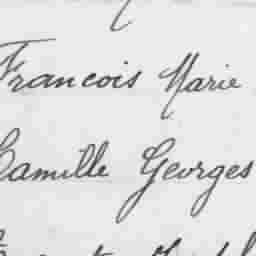 Francois Marie
Camille Georges